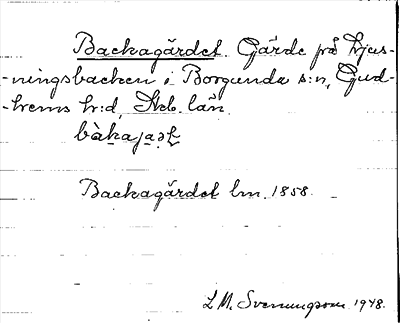 Backagärdet. Gärde på Kjus-
-ningsbacken i Borgunda s:n, Gud-
-hems h:d, Skb. län.
Backagärdet lm. 1858.
L.M. Svenungsson 1948.